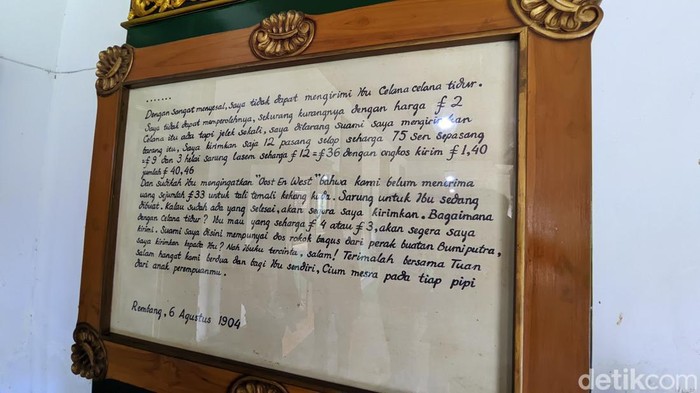 .......
Dengan sangat menyesal, saya tidak dapat mengirimi Ibu Celana celana tidur.
Saya tidak dapat memperolehnya, sekurang kurangnya dengan harga £ 2
Celana itu ada tapi jelek sekali, saya dilarang suami saya mengirimkan
barang itu, Saya kirimkan saja 12 pasang selop seharga 75 sen sepasang
= £ 9 dan 3 helai sarung lasem seharga £ 12 = £ 36 dengan ongkos kirim £ 1,40
jumlah £ 40,46
Dan sudikah Ibu mengingatkan "Oost En West" bahwa kami belum menerima
uang sejumlah £ 33 untuk tali temali kekang kuda. Sarung untuk Ibu sedang
dibuat. Kalau sudah ada yang selesai, akan segera saya kirimkan. Bagaimana
dengan celana tidur? Ibu mau yang seharga £ 4 atau £ 3, akan segera saya
kirimi. Suami saya disini mempunyai dos rokok bagus dari perak buatan Bumiputra,
saya kirimkan kepada Ibu? Nah Ibuku tercinta, salam! Terimalah bersama Tuan
salam hangat kami berdua dan bagi Ibu sendiri, Cium mesra pada tiap pipi
dari anak perempuanmu.
Rembang, 6 Agustus 1904
detikcom